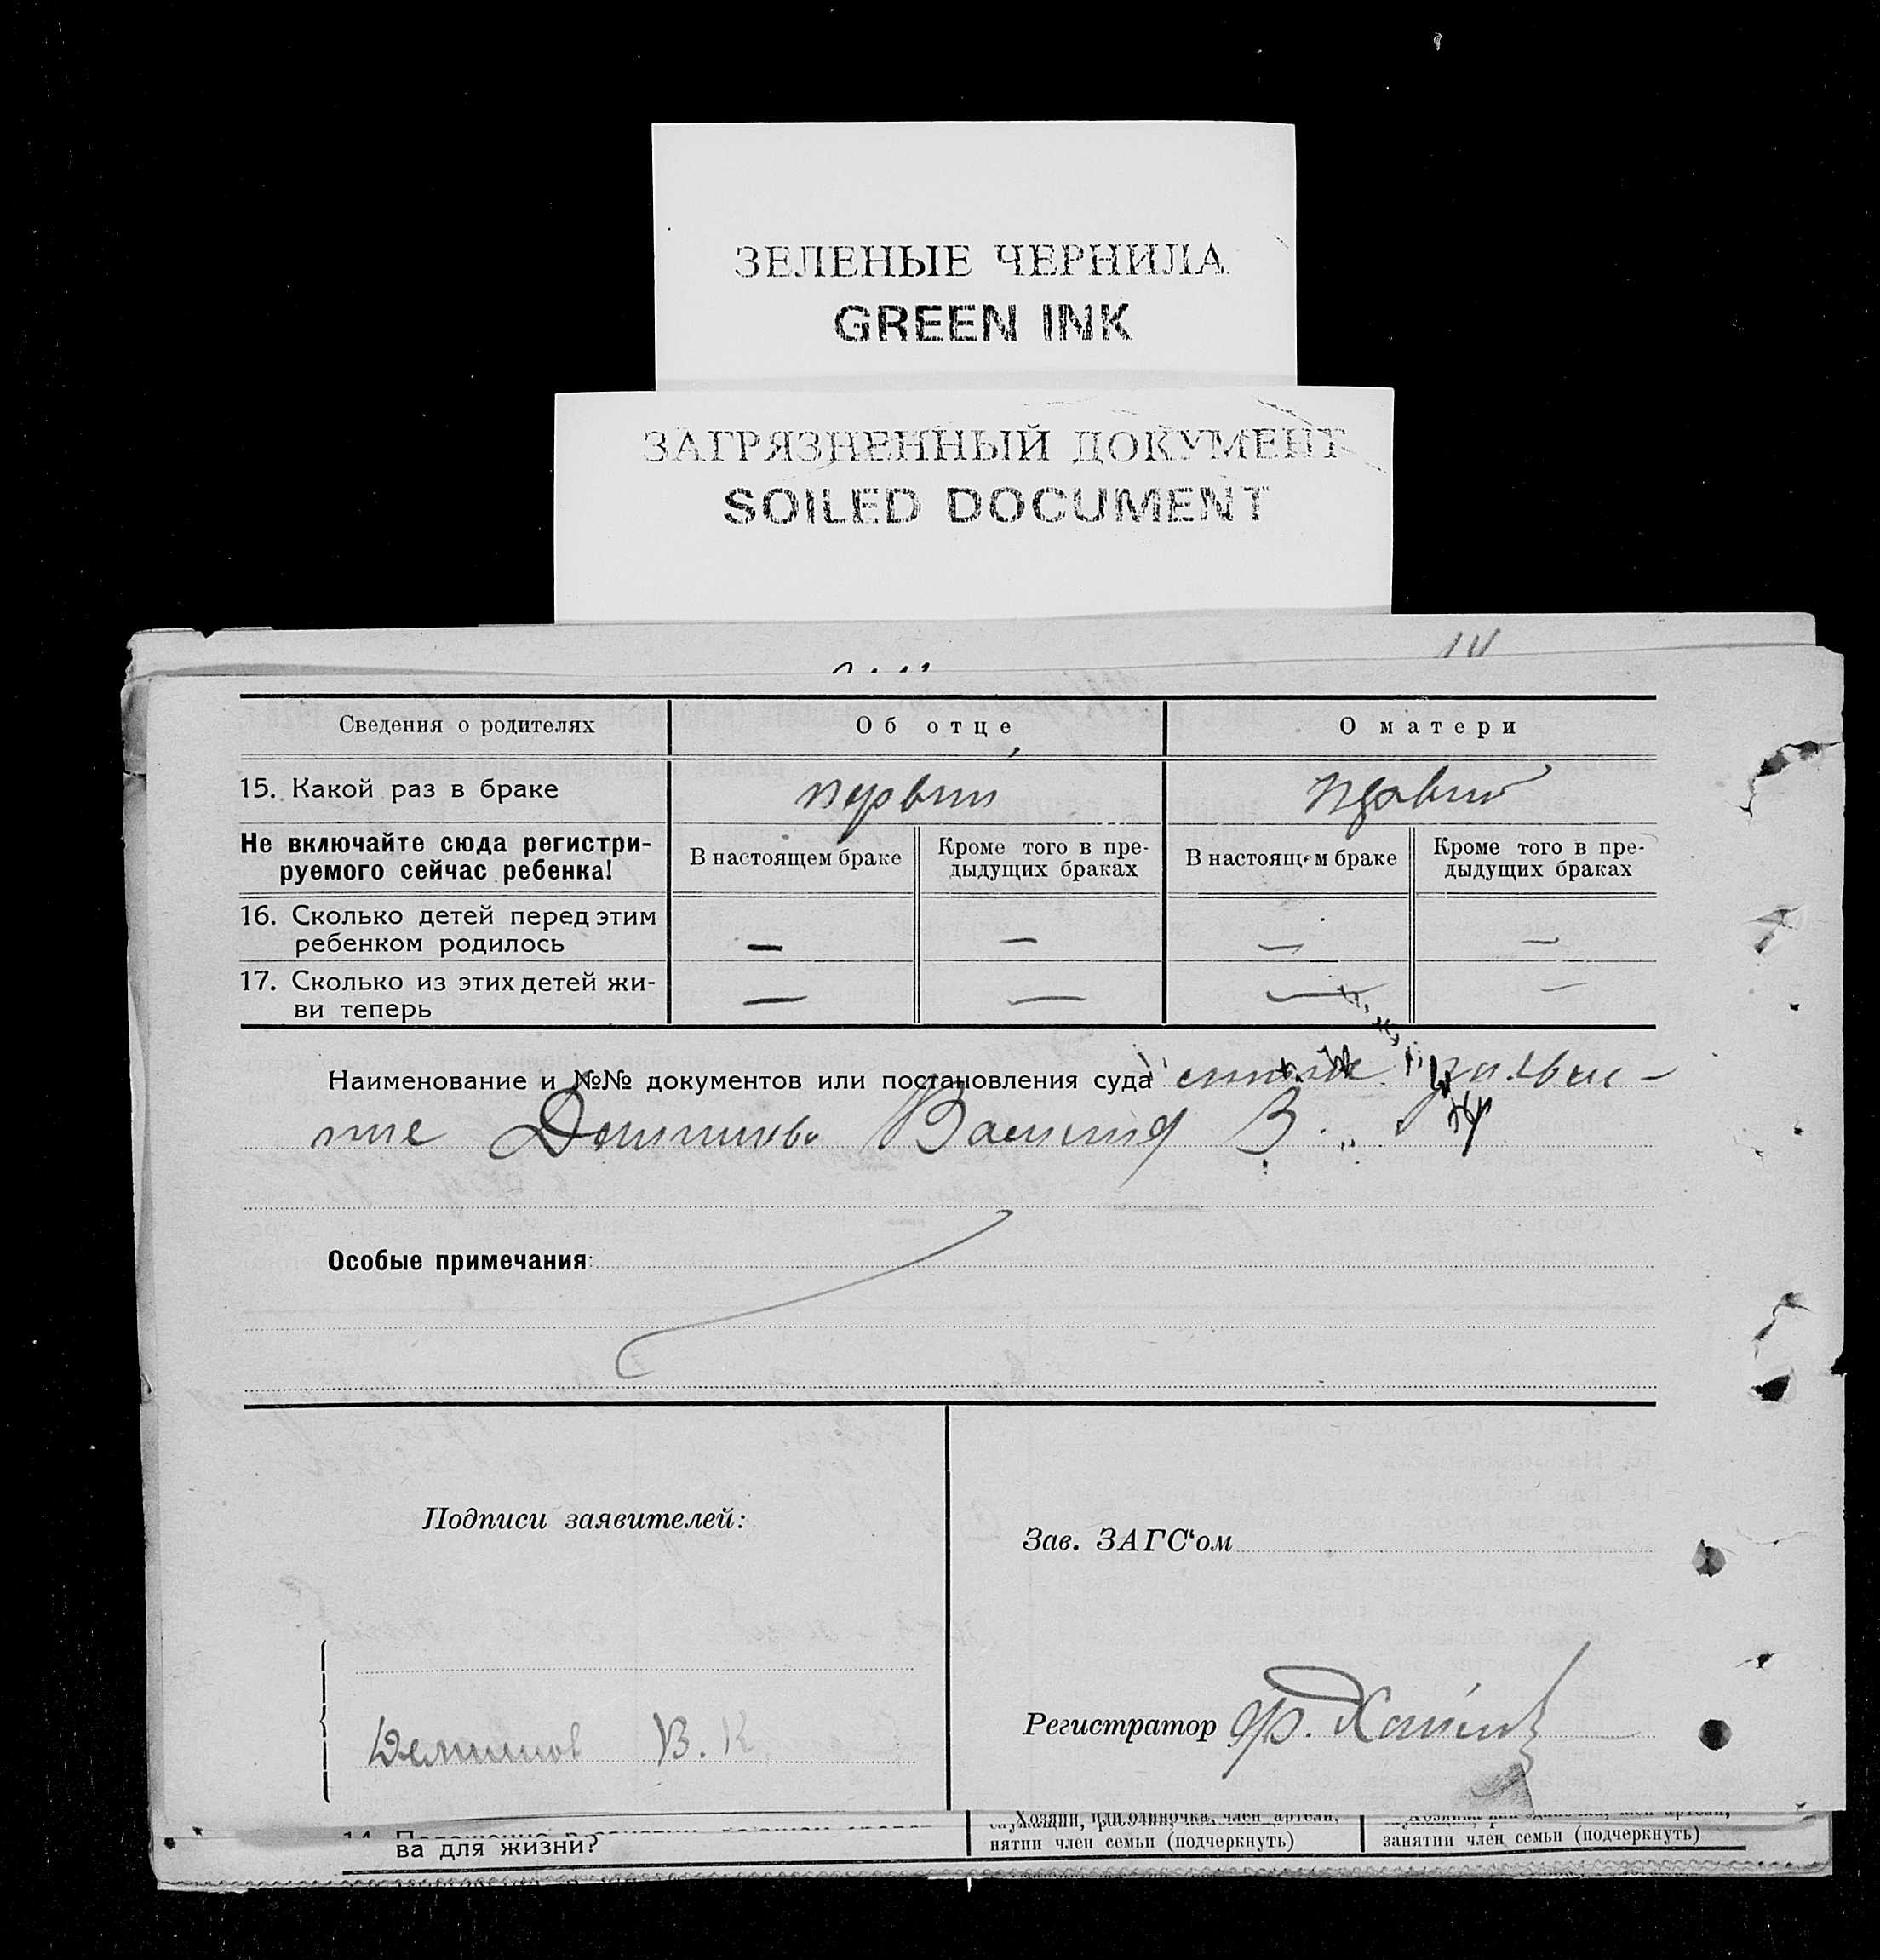 ЗЕЛЕНЫЕ ЧЕРНИЛА
GREEN INK
ЗАГРЯЗНЕННЫЙ ДОКУМЕНТ
SOILED DOCUMENT
Сведения о родителях Об отце О матери
15. Какой раз в браке первый первый
Не включайте сюда регистри-
руемого сейчас ребенка!
В настоящем браке
Кроме того в пре-
дыдущих браках
В настоящем браке
Кроме того в пре-
дыдущих браках
16. Сколько детей перед этим
ребенком родилось — — — —
17. Сколько из этих детей жи-
ви теперь — — — —
Наименование и №№ документов или постановления суда
В.
Особые примечания:
Подписи заявителей:
Зав. ЗАГС‘ом
В. К.
Регистратор
Хозяин, или одиночка, член артели,
ва для жизни?
нятии член семьи (подчеркнуть)
занятии член семьи (подчеркнуть)